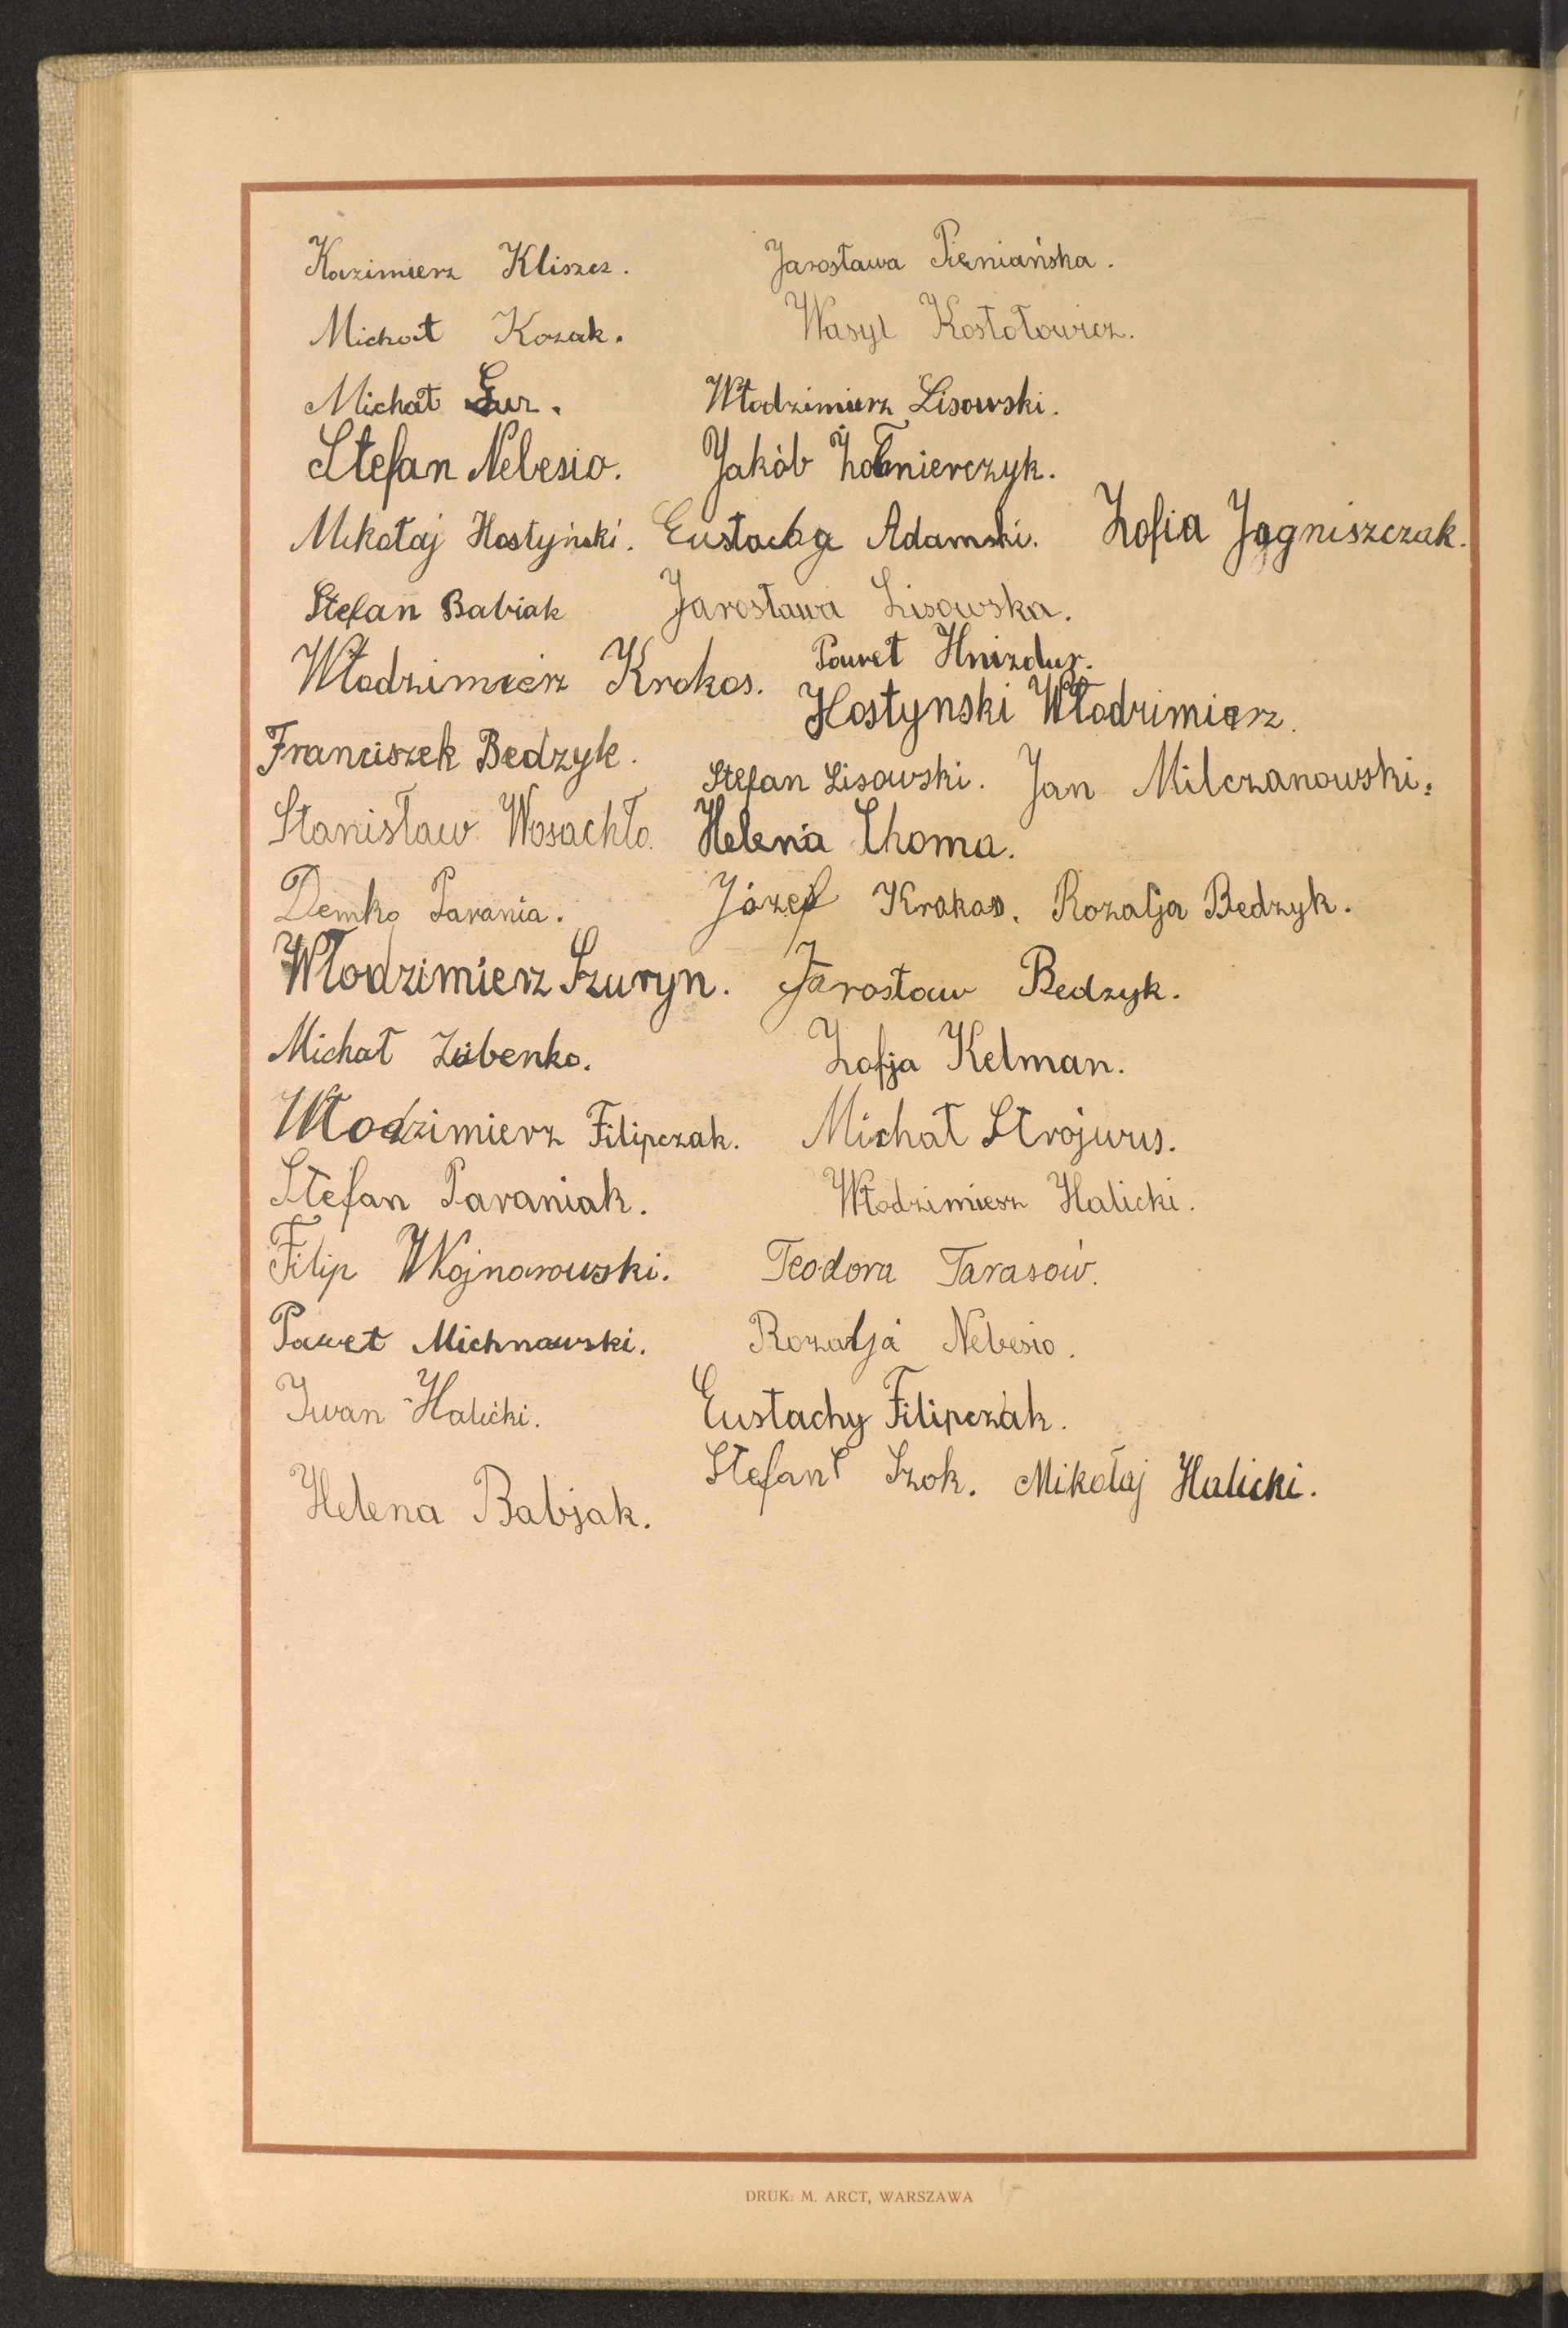 Kazimierz Kliszcz. Jarosława Pieniańska.
Michał Kozak. Wasyl Kostołowicz.
Michał Gur. Włodzimierz Lisowski.
Stefan Nebesio. Jakób Żołnierczyk.
Mikołaj Hostyński. Eustachy Adamski. Zofia Jagniszczak.
Stefan Babiak Jarosława Lisowska.
Włodzimierz Krokos. Paweł Hnizdur.
Hostynski Włodzimierz.
Franciszek Bedzyk.
Stefan Lisowski. Jan Milczanowski.
Stanisław Wosachło. Helena Choma.
Demko Parania. Józef Krokos. Rozalja Bedzyk.
Włodzimierz Szuryn. Jarosław Bedzyk.
Michał Zubenko. Zofja Kelman.
Włodzimierz Filipczak. Michał Strojwus.
Stefan Paraniak. Włodzimierz Halicki.
Filip Wojnarowski. Teodora Tarasów.
Paweł Michnowski. Rozalja Nebesio.
Iwan Halicki. Eustachy Filipczak.
Stefan Szok. Mikołaj Halicki.
Helena Babjak.
DRUK. M. ARCT, WARSZAWA